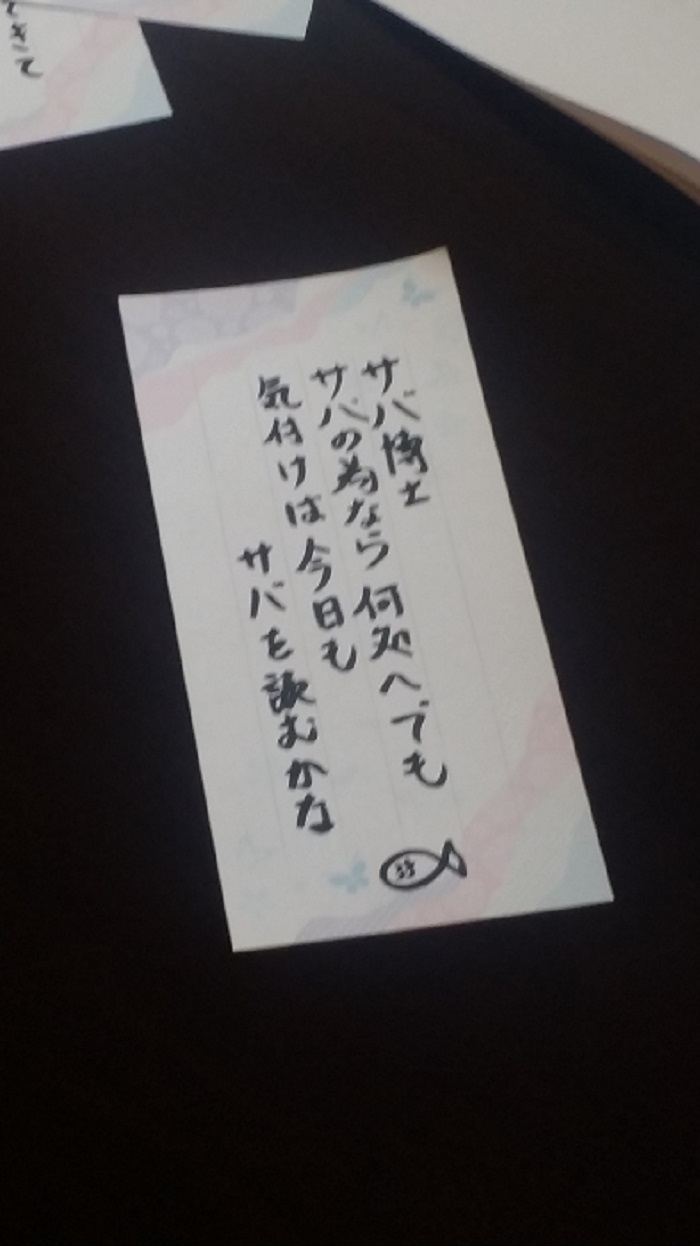 サバ博士
サバの為なら何処へでも
気付けは今日も
サバを読むかな
きて